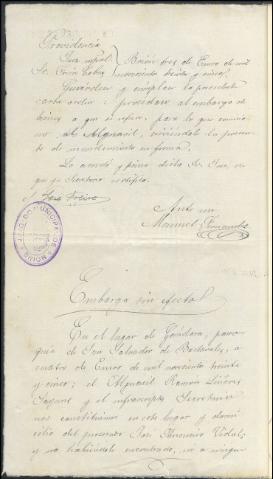 Providencia
Juez mpal.
Sr. Peña Cabez
Baión tres de Enero de mil
novecientos treinta y cinco.
Guárdese y cumplase la precedente
carta orden: procedase al embargo de
bienes a que se refiere, para lo que comisiono
al Alguacil, sirviéndole la presente
de mandamiento en forma.
Lo acordó y firma dicho Sr. Juez, de
que yo Secretario certifico.
Ante mi
Manuel Fernandez
Embargo sin efecto
En el lugar de Gandara, parroquia
de San Salvador de
cuatro de Enero de mil novecientos treinta
y cinco; el Alguacil Ramón
y el infrascripto Secretario
nos constituimos en este lugar y domicilio
del procesado José Vidal,
y no habiéndole encontrado, ni a ningun